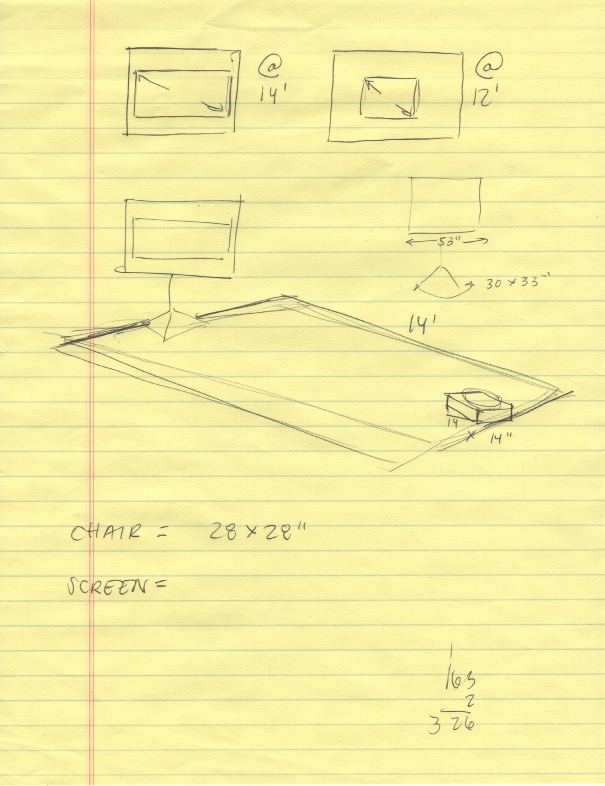 @
14'
@
12'
53"
30 x 33"
14'
14 x 14"
CHAIR = 28 x 28"
SCREEN =
1
163
2
326